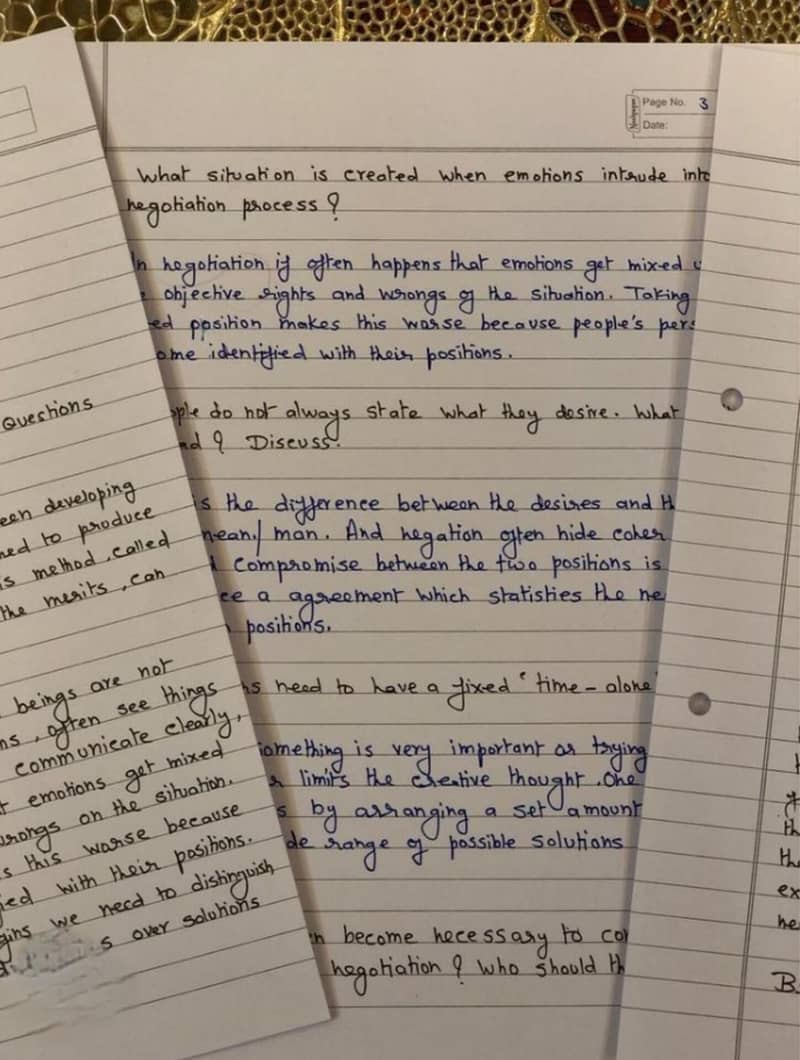 Page No. 3
Date:
What situation is created when emotions intrude into
negotiation process ?
In negotiation if often happens that emotions get mixed
objective rights and wrongs of the situation. Taking
ed position makes this worse because people's pers
ome identified with their positions.
ople do not always state what they desire. What
nd ? Discuss.
is the difference between the desires and th
mean/ man. And negation often hide coher
compromise between the two positions is
ce a agreement which statisties the ne
positions.
ns need to have a fixed " time - alone
something is very important or trying
limits the creative thought. One
s by arranging a set amount
de range of possible solutions
become necessary to con
negotiation ? Who should th
Questions
een developing
ned to produce
is method, called
the merits, can
beings are not
ns, often see things
communicate clearly,
t emotions get mixed
wrongs on the situation.
s this worse because
ied with their positions.
gins we need to distinguish
s over solutions
th
the
ex
he
B.